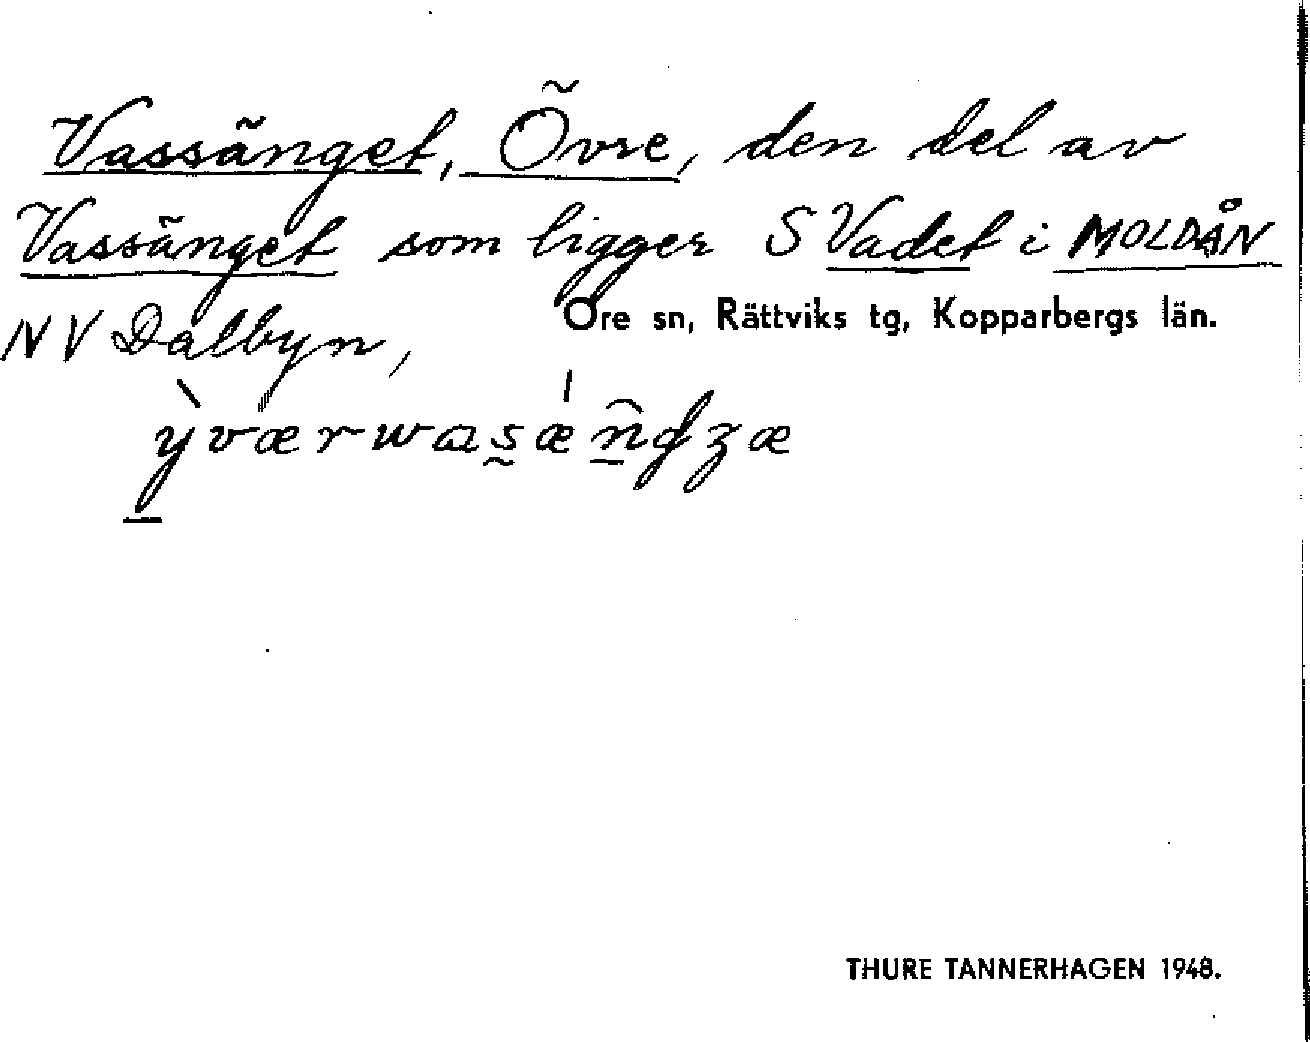 Vassänget, Övre, den del av
Vassänget som ligger S Vadet i MOLDÅN
NV Dalbyn,
Ore sn, Rättviks tg, Kopparbergs län.
THURE TANNERHAGEN 1948.